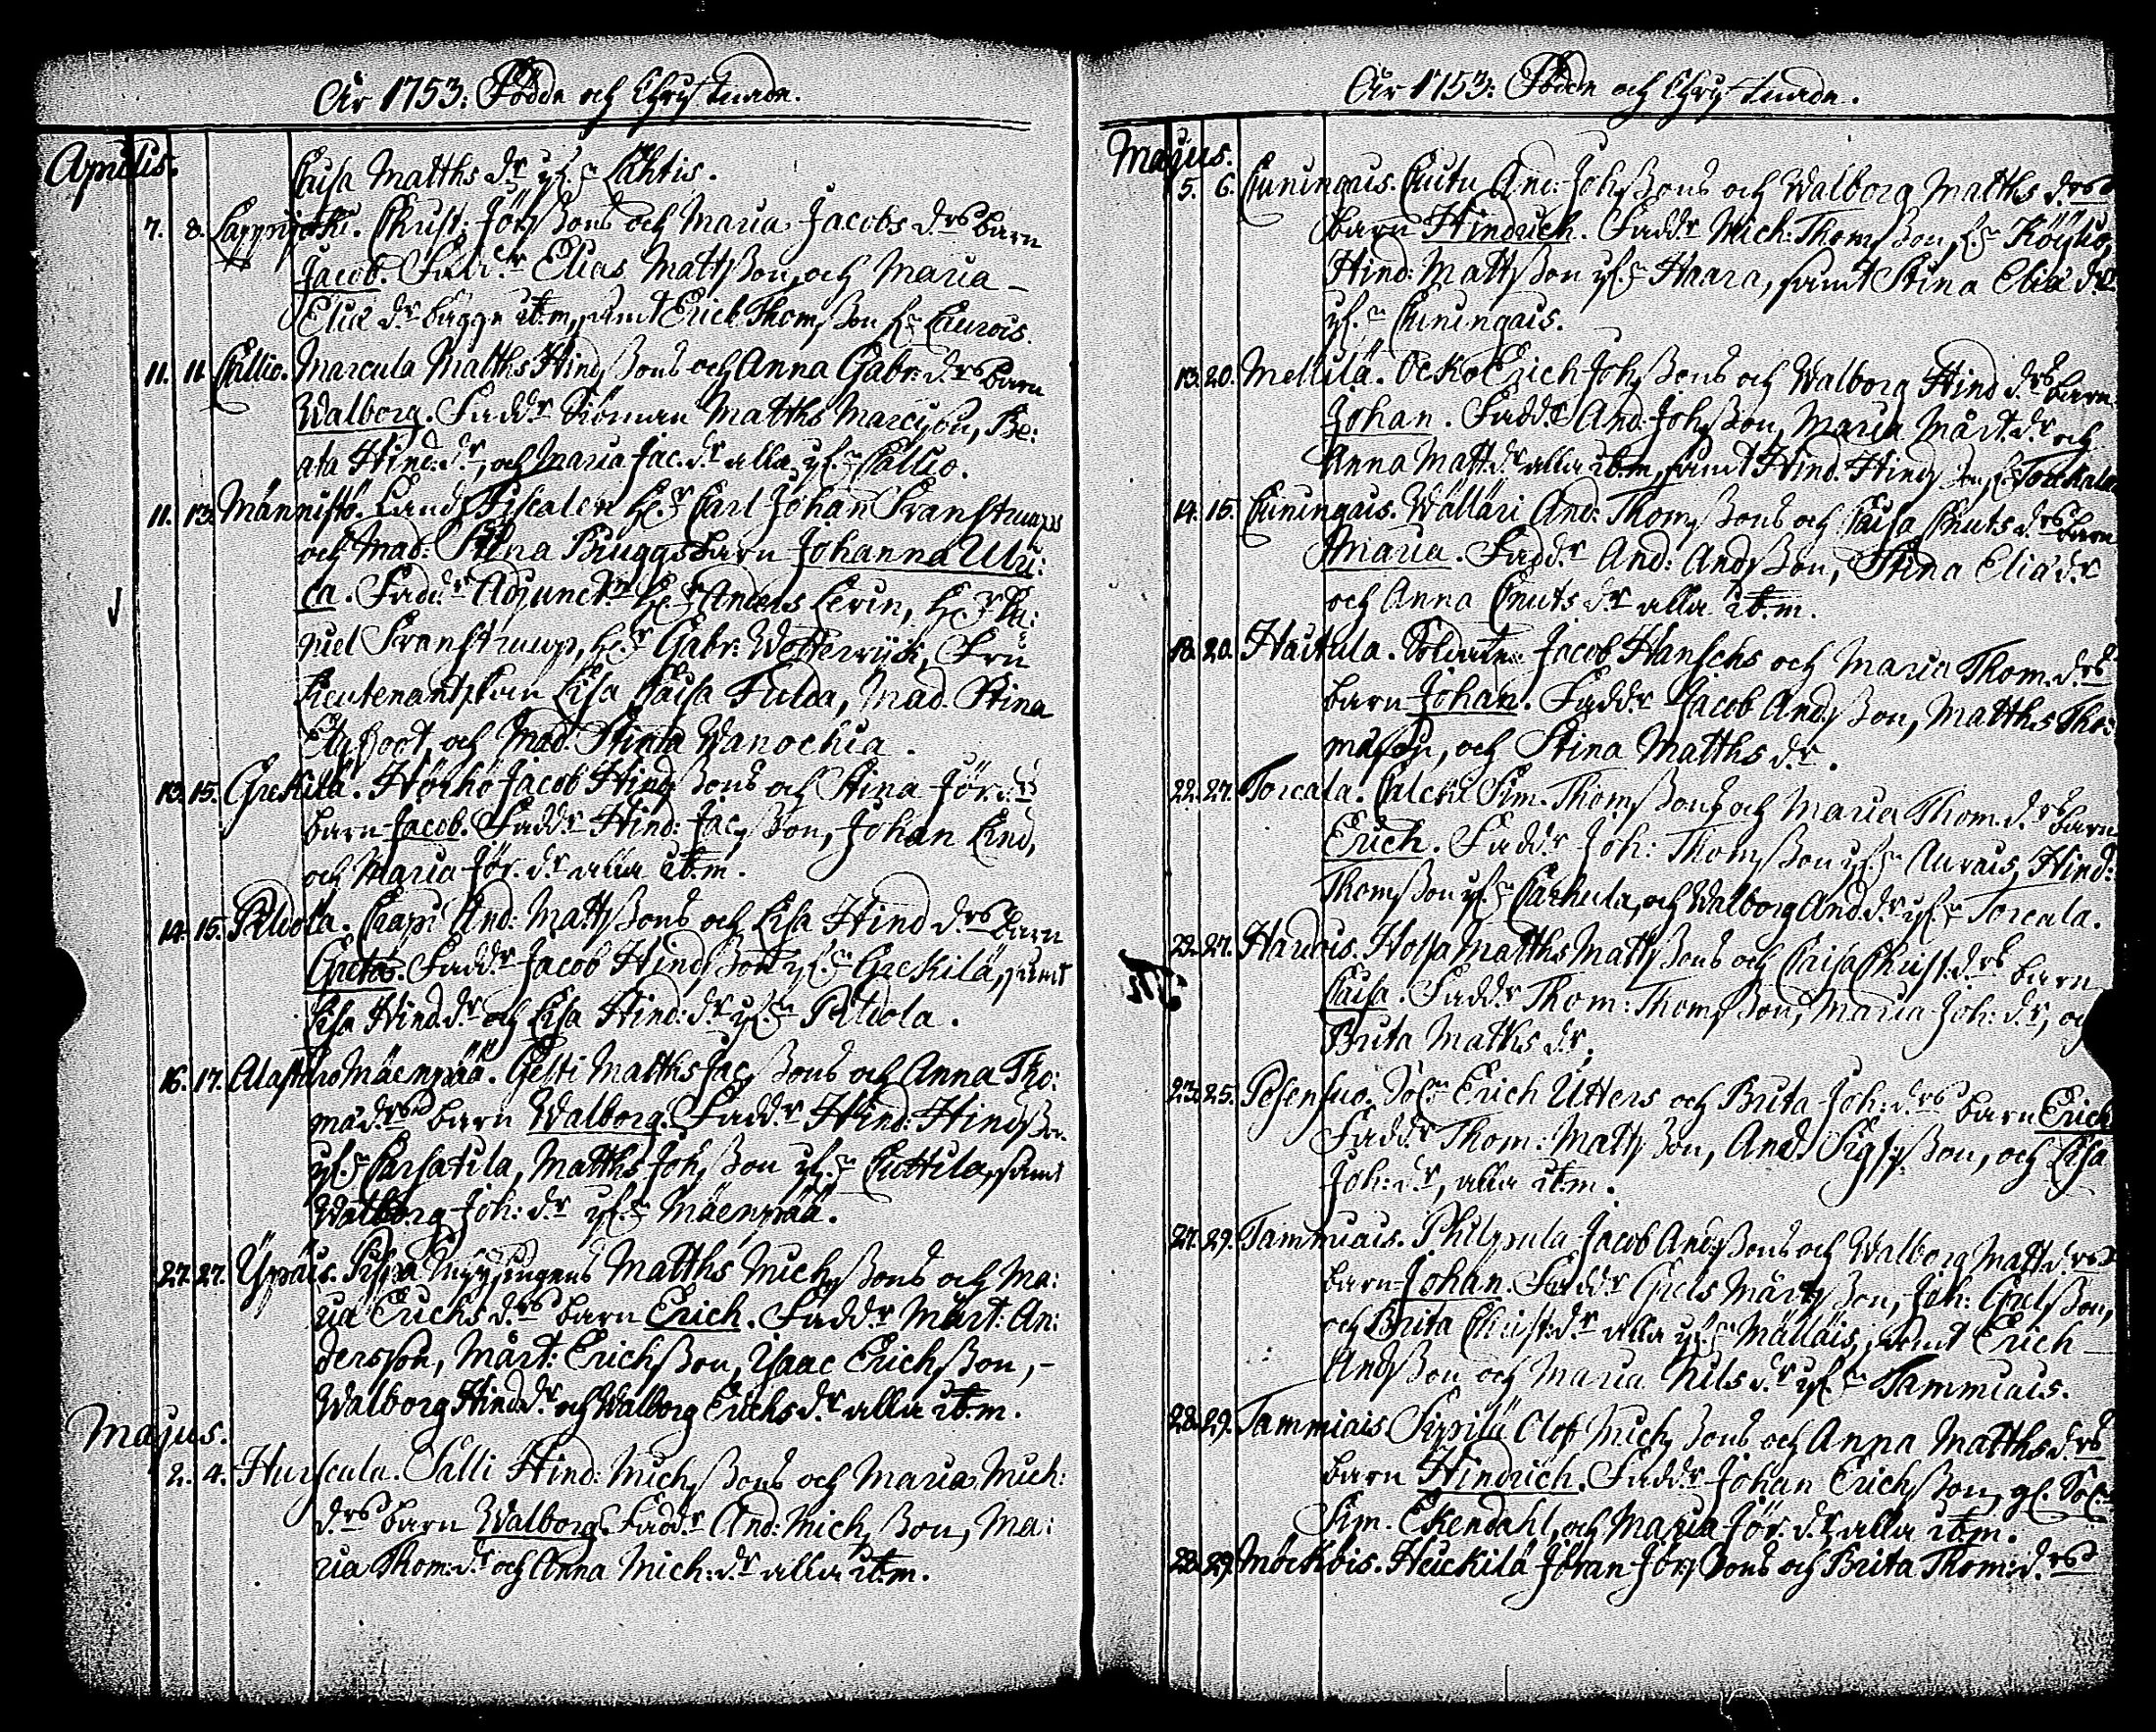 År 1753: Födde och Christnade.
Aprilis.
Caisa Matths dr ifr. Lahtis.
7. 8. Lappijoki. Christ: Jör:ßons och Maria Jacobs drs barn
Jacob. Faddr Elias Mattßon, och Maria
Eliæ dr bägge ib:m, samt Erich Thomßon fr. Laurois.
11. 11. Callio. Marcula Matths Hindßons och Anna Gabr: drs barn
Walborg. Faddr Siöman Matths Marcison, Be:
ata Hind: dr, och Maria Jac. dr alla ifr. Callio.
11. 13. Männistö. Lands Fiscalen Hr Carl Johan Franstrups
och Mad: Stina Bruggs barn Johanna Ulri:
ca. Faddr Adjunct. Hr Anders Levin, Hr Da:
niel Franstrup, Hr Gabr: Wetterwijck, Fru
Lieutenantskan Lisa Caisa Fulda, Mad. Stina
Elgfoot, och Mad. Stina Wanochia.
13. 15. Grekilä. Hörhö Jacob Hindßons och Stina Jör: drs
barn Jacob. Faddr Hind: Jacßon, Johan Lind,
och Maria Jör. dr alla ib:m.
14. 15. Pildola. Crapi And: Mattßons och Lisa Hind drs barn
Greta. Faddr Jacob Hindßon ifr. Grekilä, samt
Lisa Hind. dr och Lisa Hind: dr ifr. Pildola.
16. 17. Alastaro Mäenpää. Gesti Matths Jacßons och Anna Tho:
mæ drs barn Walborg. Faddr Hind: Hindßon
ifr. Carsatila, Matths Johßon ifr. Cuttila, samt
Walborg Joh: dr ifr. Mäenpää.
27. 27. Ypäis. Inhysingens Matths Michßons och Ma:
ria Erichs drs barn Erich. Faddr Mårt: An:
dersson, Mårt: Erichßon, Isaac Erichßon,
Walborg Hind. dr och Walborg Erichs dr alla ib:m.
Majus.
2. 4. Hurscala. Salli Hind: Michßons och Maria Mich:
drs barn Walborg. Faddr And: Michßon, Ma:
ria Thom: dr och Anna Mich: dr alla ib:m.
År 1753: Födde och Christnade.
Majus.
5. 6. Cuningais. Cutu And: Johßons och Walborg Matths drs
barn Hindrich. Faddr Mich: Thomßon, fr. Köyliö,
Hind: Mattßon ifr. Haara, samt Stina Eliæ dr
ifr. Cuningais.
13. 20. Mellilä. Ocko Erich Johßons och Walborg Hind drs barn
Johan. Faddr And: Johßon, Maria Mårt. dr och
Anna Matt. dr alla ib:m, samt Hind. Hindßon fr. Torckala
14. 15. Cuningais. Wälläri And: Thomßons och Caisa Cnuts drs barn
Maria. Faddr And: Andßon, Stina Eliæ dr
och Anna Cnuts dr alla ib:m.
18. 20. Haitula. Soldaten Jacob Hanschs och Maria Thom. drs
barn Johan. Faddr Jacob Andßon, Matths Tho:
mæson, och Stina Matths dr.
22. 27. Torcala. Calcku Sim. Thomßons och Maria Thom. drs barn
Erich. Faddr Joh: Thomßon ifr. Aurais, Hind:
Thomßon ifr. Carhula, och Walborg And. dr ifr. Torcala.
22. 27. Harois. Hossa Matths Mattßons och Caisa Christ: drs barn
Caisa. Faddr Thom: Thomßon, Maria Joh: dr, och
Brita Matths dr.
23. 25. Pesensuo. Sol. Erich Utters och Brita Joh: drs barn Erich
Faddr Thom: Mattßon, And: Sigfrßon, och Lisa
Joh: dr, alla ib:m.
27. 29. Tammiais. Philpula Jacob Andßons och Walborg Matt drs
barn Johan. Faddr Grels Mårtßon, Joh: Grelßon,
och Brita Christ: dr alla ifr. Mälläis, samt Erich
Andßon och Maria Nils dr ifr. Tammiais.
28. 29. Tammiais Sipilä Olof Michßons och Anna Matths drs
barn Hindrich. Faddr Johan Erichßon, gl. Sol.
Sim. Ekendahl, och Maria Jör. dr alla ib:m.
28. 29. Möckois. Heickilä Jöran Jörßons och Brita Thom: drs